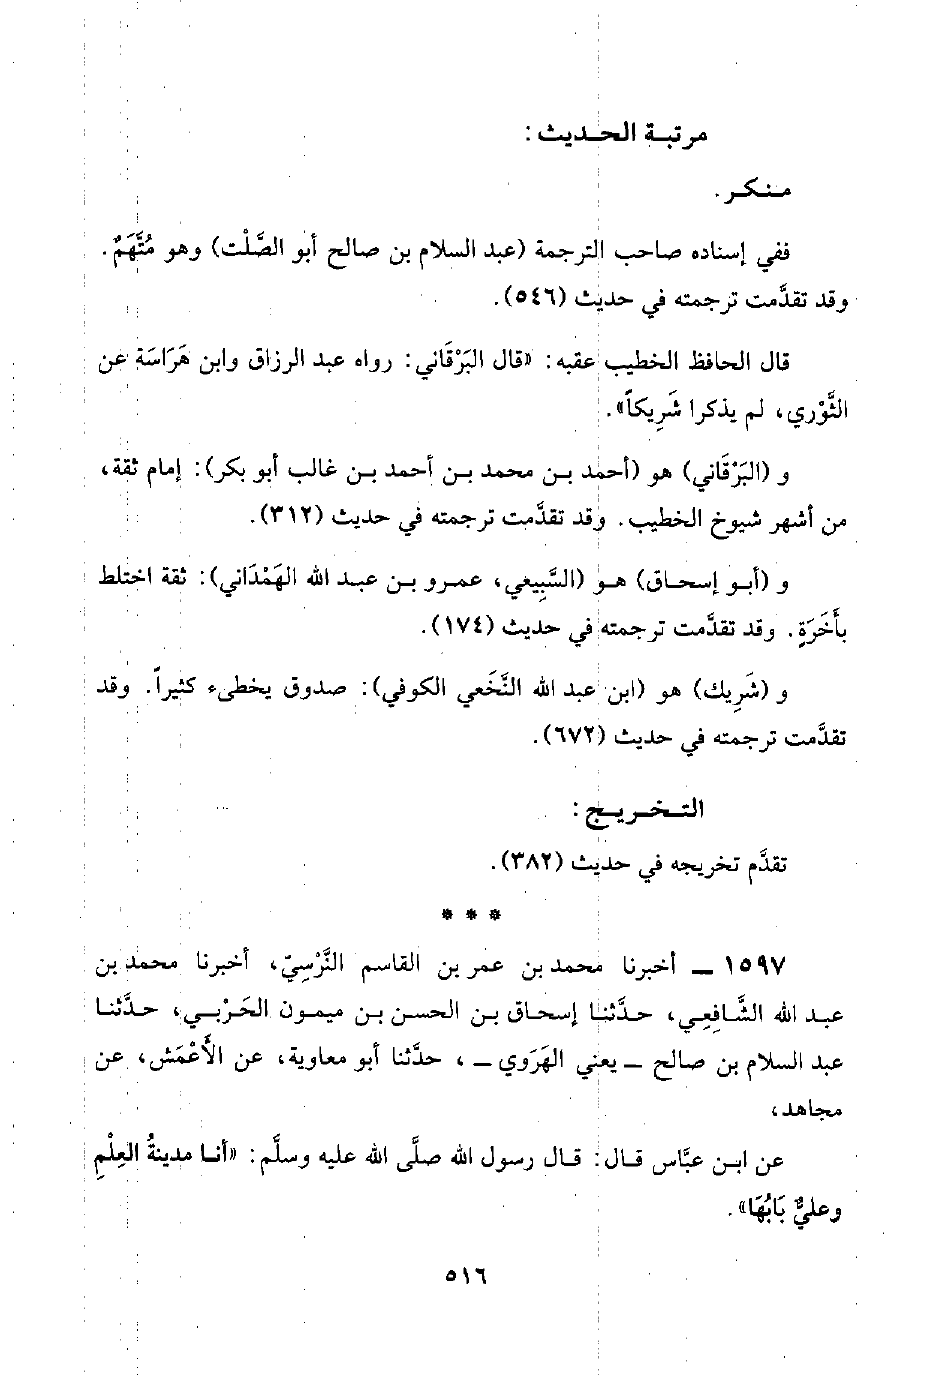 مرتبة الحديث :
منكر .
ففي إسناده صاحب الترجمة (عبد السلام بن صالح أبو الصَّلْت) وهو مُتَّهَمٌ .
وقد تقدَّمت ترجمته في حديث (٥٤٦).
قال الحافظ الخطيب عقبه: «قال البَرْقَاني: رواه عبد الرزاق وابن هَرَاسَة عن
الثَّوْري، لم يذكرا شَرِيكاً».
و (البَرْقَاني) هو (أحمد بن محمد بن أحمد بن غالب أبو بكر): إمام ثقة،
من أشهر شيوخ الخطيب. وقد تقدَّمت ترجمته في حديث (٣١٢).
و (أبو إسحاق) هو (السَّبِيعي، عمرو بن عبد الله الهَمْدَاني): ثقة اختلط
بأَخَرَةٍ. وقد تقدَّمت ترجمته في حديث (١٧٤).
و (شَرِيك) هو (ابن عبد الله النَّخَعي الكوفي): صدوق يخطىء كثيراً. وقد
تقدَّمت ترجمته في حديث (٦٧٢).
التخريج :
تقدَّم تخريجه في حديث (٣٨٢).
* * *
١٥٩٧ ــ أخبرنا محمد بن عمر بن القاسم النَّرْسِيّ، أخبرنا محمد بن
عبد الله الشَّافِعي، حدَّثنا إسحاق بن الحسن بن ميمون الحَرْبي، حدَّثنا
عبد السلام بن صالح ــ يعني الهَرَوي ــ ، حدَّثنا أبو معاوية، عن الأَعْمَش، عن
مجاهد،
عن ابن عبَّاس قال: قال رسول الله صلَّى الله عليه وسلَّم: «أنا مدينةُ العِلْمِ
وعليٌّ بَابُهَا».
٥١٦